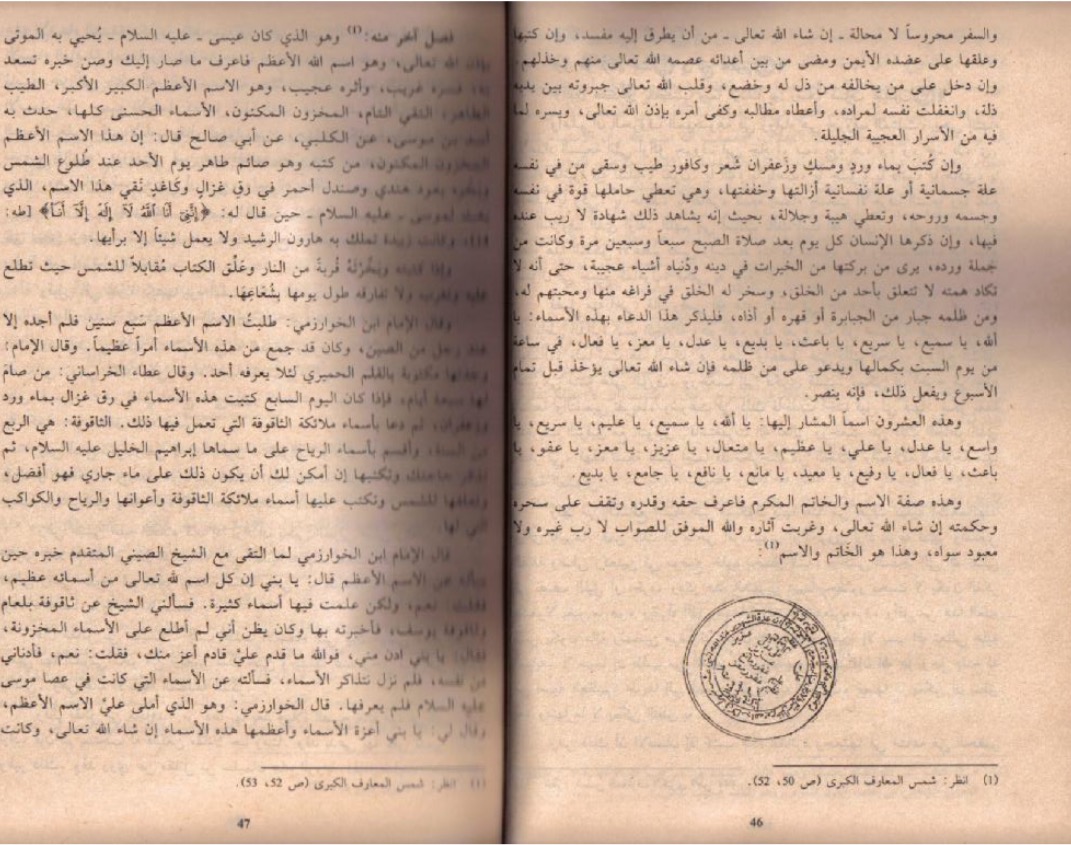 والسفر محروساً لا محالة ـ إن شاء الله تعالى ـ من أن يطرق إليه مفسد، وإن كتبها
وعلقها على عضده الأيمن ومضى من بين أعدائه عصمه الله تعالى منهم وخذلهم.
وإن دخل على من يخالفه من ذل له وخضع، وقلب الله تعالى جبروته بين يديه
ذلة، وانغفلت نفسه لمراده، وأعطاه مطالبه وكفى أمره بإذن الله تعالى، ويسره لما
فيه من الأسرار العجيبة الجليلة.
وإن كُتبت بماء وردٍ ومسكٍ وزعفران شعر وكافور طيب وسقى من في نفسه
علة جسمانية أو علة نفسانية أزالتها وخففتها، وهي تعطي حاملها قوة في نفسه
وجسمه وروحه، وتعطي هيبة وجلالة، بحيث إنه يشاهد ذلك شهادة لا ريب عنده
فيها، وإن ذكرها الإنسان كل يوم بعد صلاة الصبح سبعاً وسبعين مرة وكانت من
جملة ورده، يرى من بركتها من الخيرات في دينه ودُنياه أشياء عجيبة، حتى أنه لا
تكاد همته لا تتعلق بأحد من الخلق، وسخر له الخلق في فراغه منها ومحبتهم له،
ومن ظلمه جبار من الجبابرة أو قهره أو أذاه، فليذكر هذا الدعاء بهذه الأسماء: يا
ألله، يا سميع، يا سريع، يا باعث، يا بديع، يا عدل، يا معز، يا فعال، في ساعة
من يوم السبت بكمالها ويدعو على من ظلمه فإن شاء الله تعالى يؤخذ قبل تمام
الأسبوع ويفعل ذلك، فإنه ينصر.
وهذه العشرون اسماً المشار إليها: يا ألله، يا سميع، يا عليم، يا سريع، يا
واسع، يا عدل، يا علي، يا عظيم، يا متعال، يا عزيز، يا معز، يا عفو، يا
باعث، يا فعال، يا رفيع، يا معيد، يا مانع، يا نافع، يا جامع، يا بديع.
وهذه صفة الاسم والخاتم المكرم فاعرف حقه وقدره وتقف على سحره
وحكمته إن شاء الله تعالى، وغربت آثاره والله الموفق للصواب لا رب غيره ولا
معبود سواه، وهذا هو الخَاتم والاسم(1):
(1) انظر: شمس المعارف الكبرى (ص 50، 52).
46
فصل آخر منه:(1) وهو الذي كان عيسى ـ عليه السلام ـ يُحيي به الموتى
بإذن الله تعالى، وهو اسم الله الأعظم فاعرف ما صار إليك وصن خيره تسعد
به، فسره غريب، وأثره عجيب، وهو الاسم الأعظم الكبير الأكبر، الطيب
الطاهر، النقي التام، المخزون المكنون، الأسماء الحسنى كلها، حدث به
بن موسى، عن الكلبي، عن أبي صالح قال: إن هذا الاسم الأعظم
المخزون المكنون، من كتبه وهو صائم طاهر يوم الأحد عند طُلوع الشمس
وبخره بعود هندي وصندل أحمر في رق غزالٍ وكَاغدٍ نَقي هذا الاسم، الذي
لموسى ـ عليه السلام ـ حين قال له: ﴿إِنَّنِيٓ أَنَا ٱللَّهُ لَآ إِلَٰهَ إِلَّآ أَنَا۠﴾ [طه:
14]، وكانت زبيدة تملك به هارون الرشيد ولا يعمل شيئاً إلا برأيها.
وإذا كتبته وبَخَّرْتَهُ قُربةً من النار وعَلِّق الكتاب مُقابلاً للشمس حيث تطلع
عليه وتغرب ولا تفارقه طول يومها بِشُعَاعِهَا.
وقال الإمام ابن الخوارزمي: طلبتُ الاسم الأعظم سَبع سنين فلم أجده إلا
عند رجل من الصين، وكان قد جمع من هذه الأسماء أمراً عظيماً. وقال الإمام:
وجدتها مكتوبة بالقلم الحميري لئلا يعرفه أحد. وقال عطاء الخراساني: من صامَ
لها سبعة أيام، فإذا كان اليوم السابع كتبت هذه الأسماء في رق غزال بماء ورد
وزعفران، ثم دعا بأسماء ملائكة الثاقوفة التي تعمل فيها ذلك. الثاقوفة: هي الربع
من السنة، وأقسم بأسماء الرياح على ما سماها إبراهيم الخليل عليه السلام، ثم
تذكر حاجتك وتكتبها إن أمكن لك أن يكون ذلك على ماء جاري فهو أفضل،
للشمس وتكتب عليها أسماء ملائكة الثاقوفة وأعوانها والرياح والكواكب
التي لها.
قال الإمام ابن الخوارزمي لما التقى مع الشيخ الصيني المتقدم خبره حين
سأله عن الاسم الأعظم قال: يا بني إن كل اسم لله تعالى من أسمائه عظيم،
فقلت: نعم، ولكن علمت فيها أسماء كثيرة. فسألني الشيخ عن ثاقوفة بلعام
وثاقوفة يوسف، فأخبرته بها وكان يظن أني لم أطلع على الأسماء المخزونة،
فقال: يا بني ادن مني، فوالله ما قدم عليَّ قادم أعز منك، فقلت: نعم، فأدناني
من نفسه، فلم نزل نتذاكر الأسماء، فسألته عن الأسماء التي كانت في عصا موسى
عليه السلام فلم يعرفها. قال الخوارزمي: وهو الذي أملى عليَّ الاسم الأعظم،
وقال لي: يا بني أعزة الأسماء وأعظمها هذه الأسماء إن شاء الله تعالى، وكانت
(1) انظر: شمس المعارف الكبرى (ص 52، 53).
47